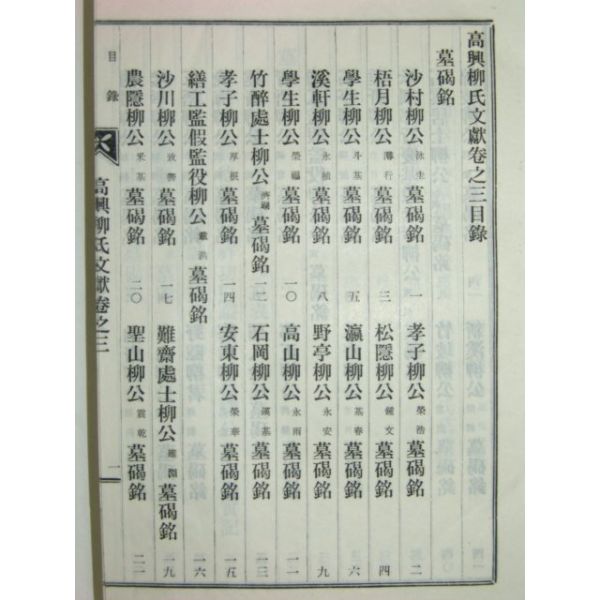 高興柳氏文獻卷之三目錄
墓碣銘
沙村柳公 泳圭 墓碣銘 一 孝子柳公 榮浩 墓碣銘 二
梧月柳公 行 墓碣銘 三 松隱柳公 鍾文 墓碣銘 四
學生柳公 斗基 墓碣銘 五 瀛山柳公 基春 墓碣銘 六
溪軒柳公 永楨 墓碣銘 八 野亭柳公 永安 墓碣銘 九
學生柳公 榮 墓碣銘 一〇 高山柳公 永雨 墓碣銘 一一
竹醉處士柳公 墓碣銘 一二 石岡柳公 漢基 墓碣銘 一三
孝子柳公 厚根 墓碣銘 一四 安東柳公 榮春 墓碣銘 一五
繕工監假監役柳公 墓碣銘 一六
沙川柳公 墓碣銘 一七 難齋處士柳公 墓碣銘 一九
農隱柳公 米基 墓碣銘 二〇 聖山柳公 震乾 墓碣銘 二二
目錄
高興柳氏文獻卷之三
一